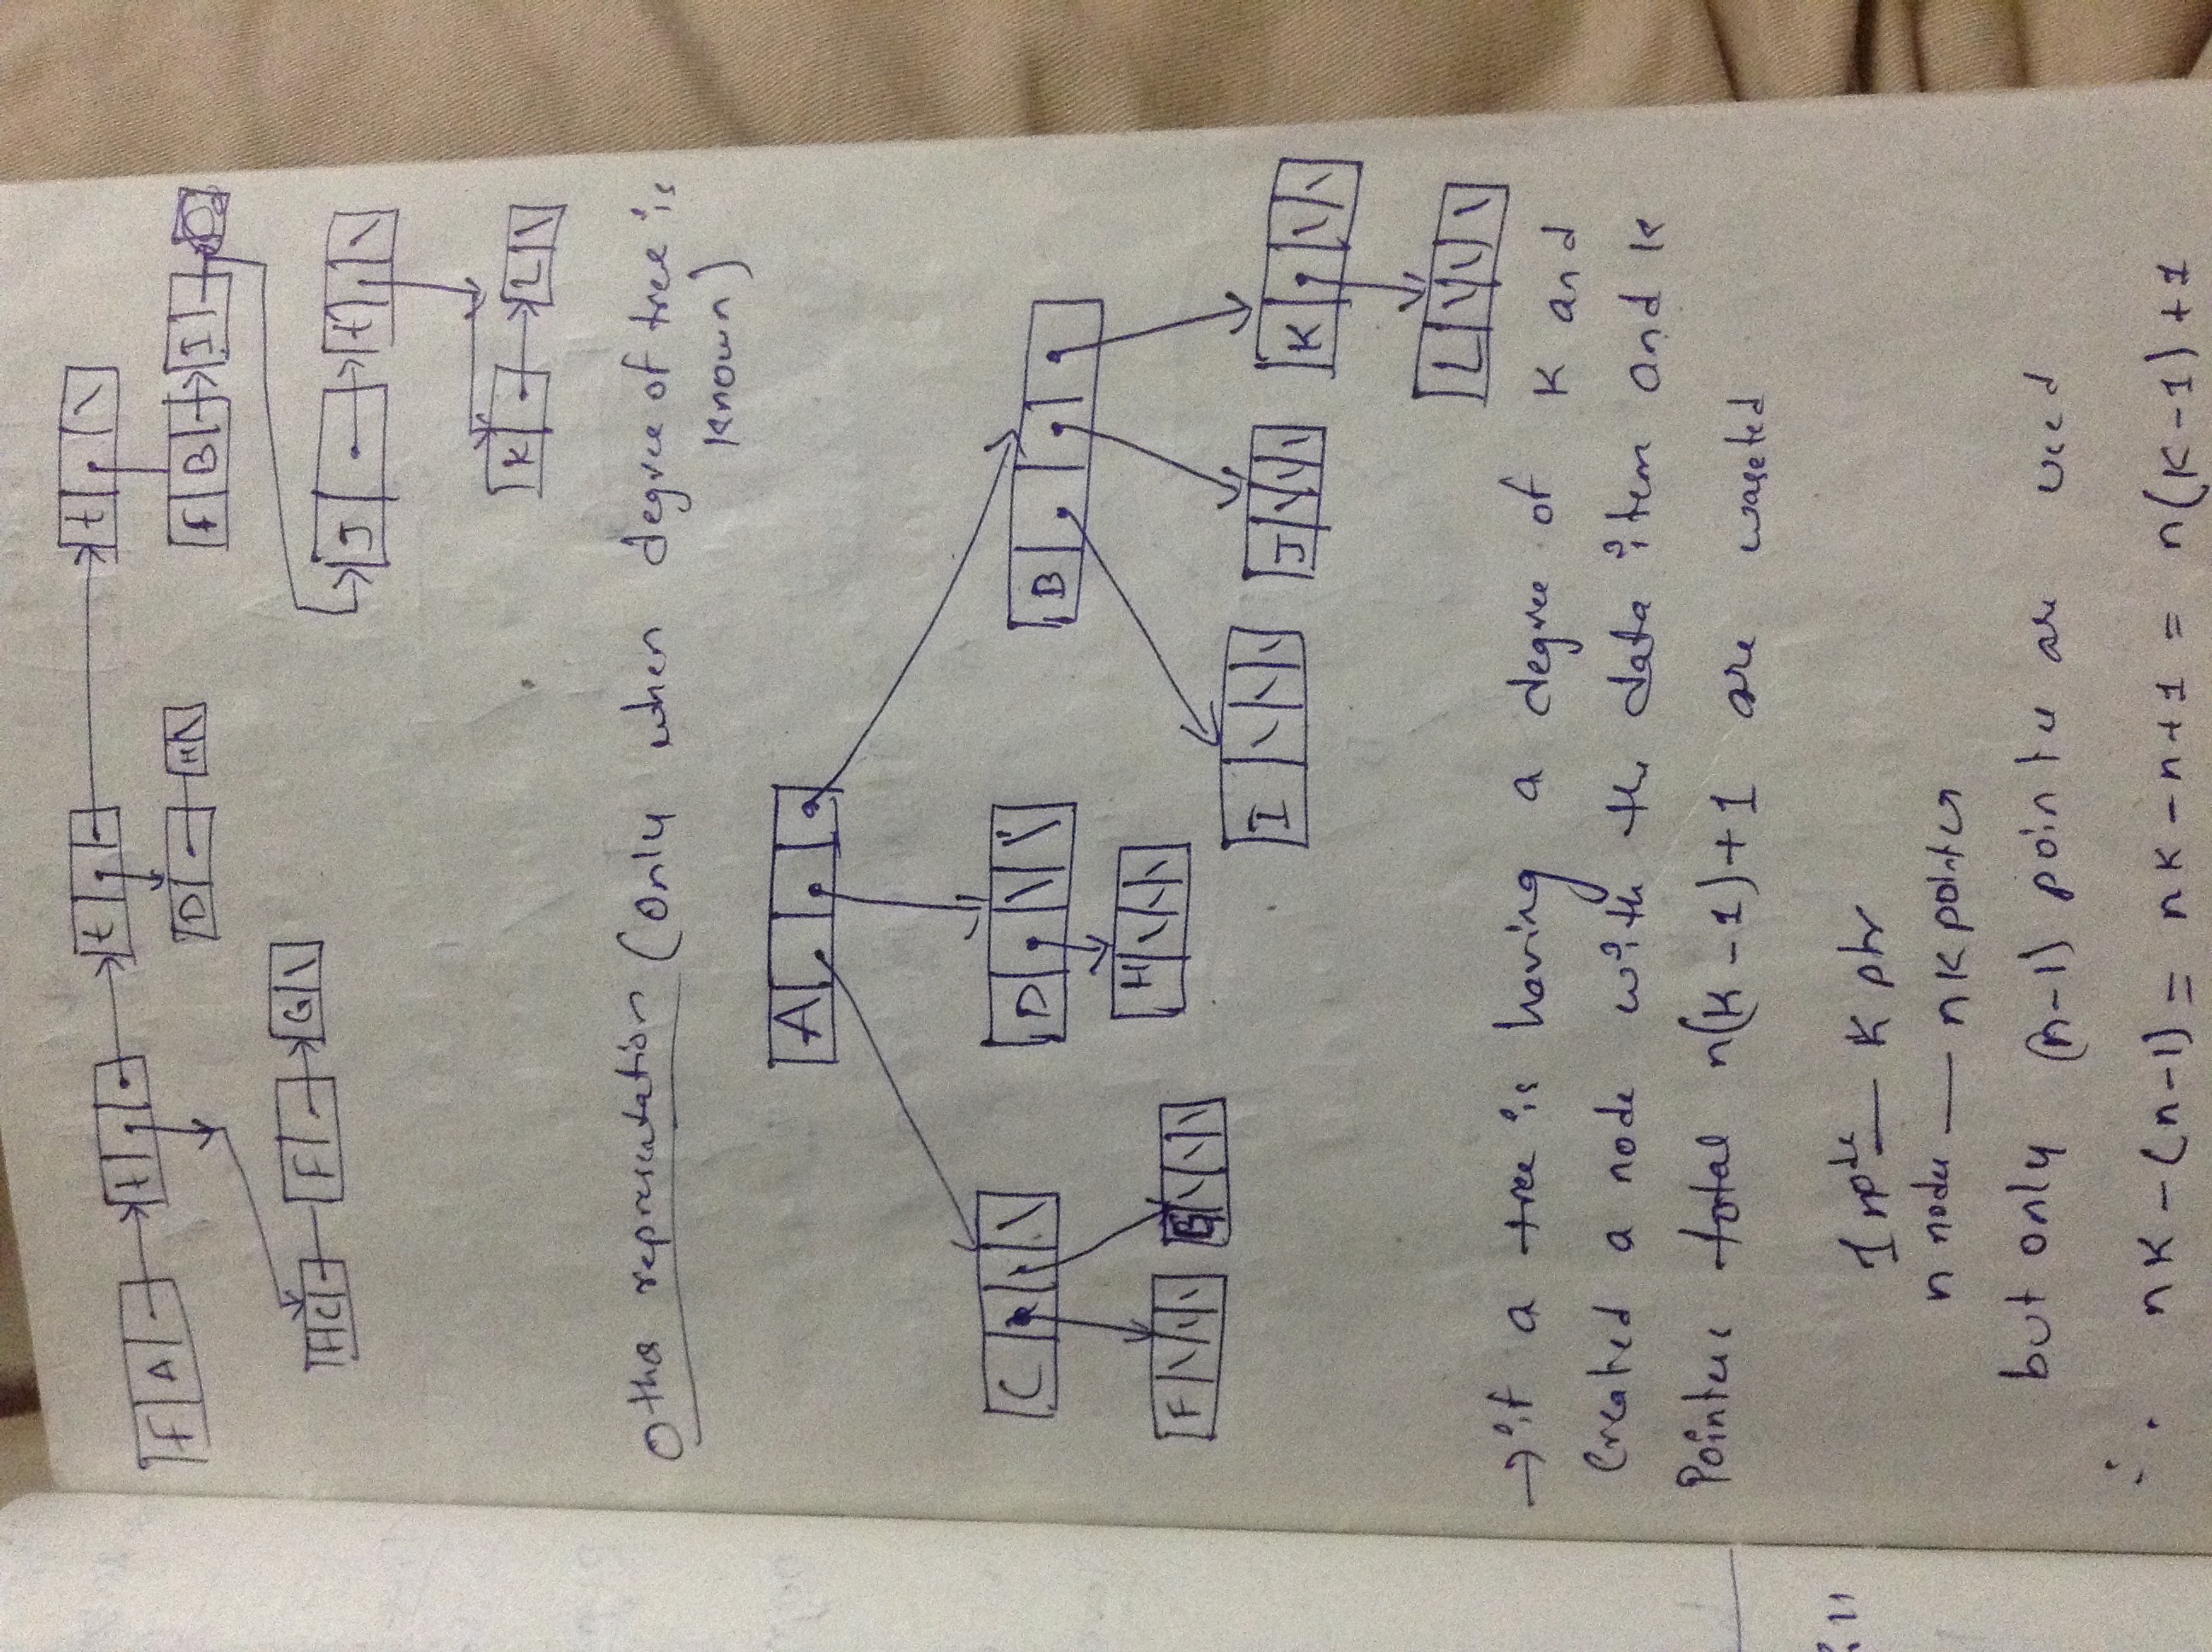 f A
t
t
t
D
H
f B
I
C
F
G
J
t
K
L
Other representation (Only when degree of tree is
known)
A
C
D
B
F
G
H
I
J
K
L
→ if a tree is having a degree of K and
Created a node with the data item and K
Pointers total n(K-1)+1 are wasted
1 node — K ptr
n nodes — nK pointer
but only (n-1) pointer are used
∴ nK-(n-1) = nK-n+1 = n(K-1)+1